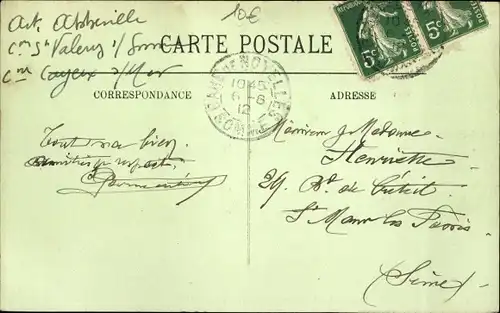 Art. Abbeville
10€
Con St Valery s/ Somme
CARTE POSTALE
Cne Cayeux s/Mer
5c
POSTES
5c
POSTES
NOYELLES
10 45
6 - 8
12
SOMME
CORRESPONDANCE
ADRESSE
Tout va bien
Monsieur & Madame
Henriette
29. Bd de Créteil
St Maur les Fossés
(Seine)